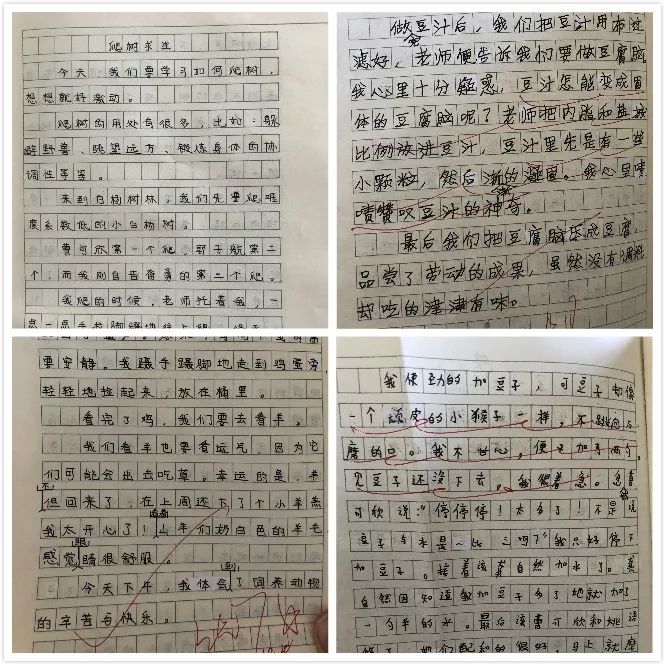 爬树求生
今天,我们要学习如何爬树,
想想就好激动。
爬树的用处有很多,比如:躲
避野兽、眺望远方、锻炼身体的协
调性等等。
来到白杨树林,我们先要爬难
度系数低的小白杨树。
曹可欣第一个爬,郭子航第二
个,而我则自告奋勇的第三个爬。
我爬的时候,老师托着我,一
做豆汁后,我们把豆汁用布过
滤好,老师便告诉我们要做豆腐脑
我心里十分疑惑,豆汁怎能变成固
体的豆腐脑呢?老师把内脂和盐按
比例放进豆汁,豆汁里先是有一些
小颗粒,然后渐的凝固。我心里啧
啧赞叹豆汁的神奇。
最后我们把豆腐脑压成豆腐,
品尝了劳动的成果,虽然没有调料
却吃的津津有味。
要安静。我蹑手蹑脚地走到鸡蛋旁,
轻轻地捡起来,放在桶里。
看完了鸡,我们要去看羊。
我们看羊也要看运气,因为它
们可能会出去吃草。幸运的是,羊
但回来了,在上周还下了个小羊羔
我太开心了!山羊们奶白色的羊毛
感觉晴很舒服。
今天下午,我体会了饲养动物
的辛苦与快乐。
我便劲的加豆子,可豆子却像
一个顽皮的小猴子一样,不跳向石
磨的口。我不甘心,便又加了两勺。
见豆子还没下去,我很着急。
可欣说:“停停停!太多了!不是说
豆子与水是一比三吗?”我只好停下
加豆子。接着该龚自然加水了。龚
自然因知道我加豆子多了她就加了
一勺半的水。最后该曹可欣和姚语